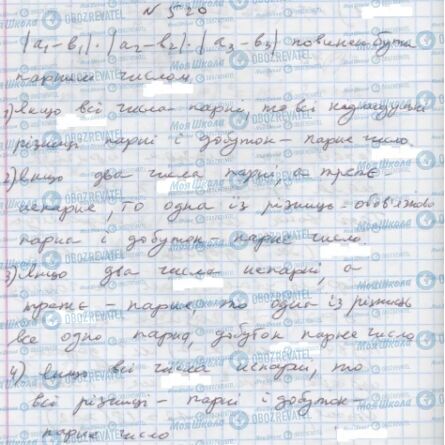 № 520
|a₁-b₁|·|a₂-b₂|·|a₃-b₃| повинен бути
парним числом
1) Якщо всі числа парні, то всі
різниці парні і добуток - парне число.
2) якщо два числа парні, а третє -
непарне, то одна із різниць - обов'язково
парна і добуток - парне число.
3) Якщо два числа непарні, а
третє - парне, то одна із різниць
все одно парна, добуток парне число
4) якщо всі числа непарні, то
всі різниці - парні і добуток -
парне число